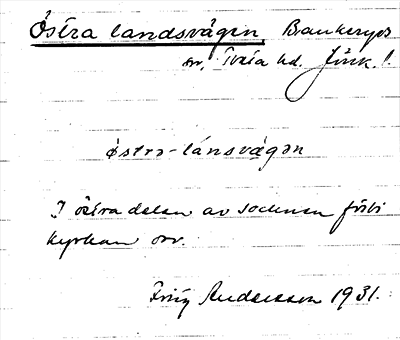 Östra landsvägen, Bankeryds
sn, Tveta hd. Jönk. l.
östra-lánsvägan
I östra delen av socknen förbi
kyrkan osv.
Fritz Andersson 1931.